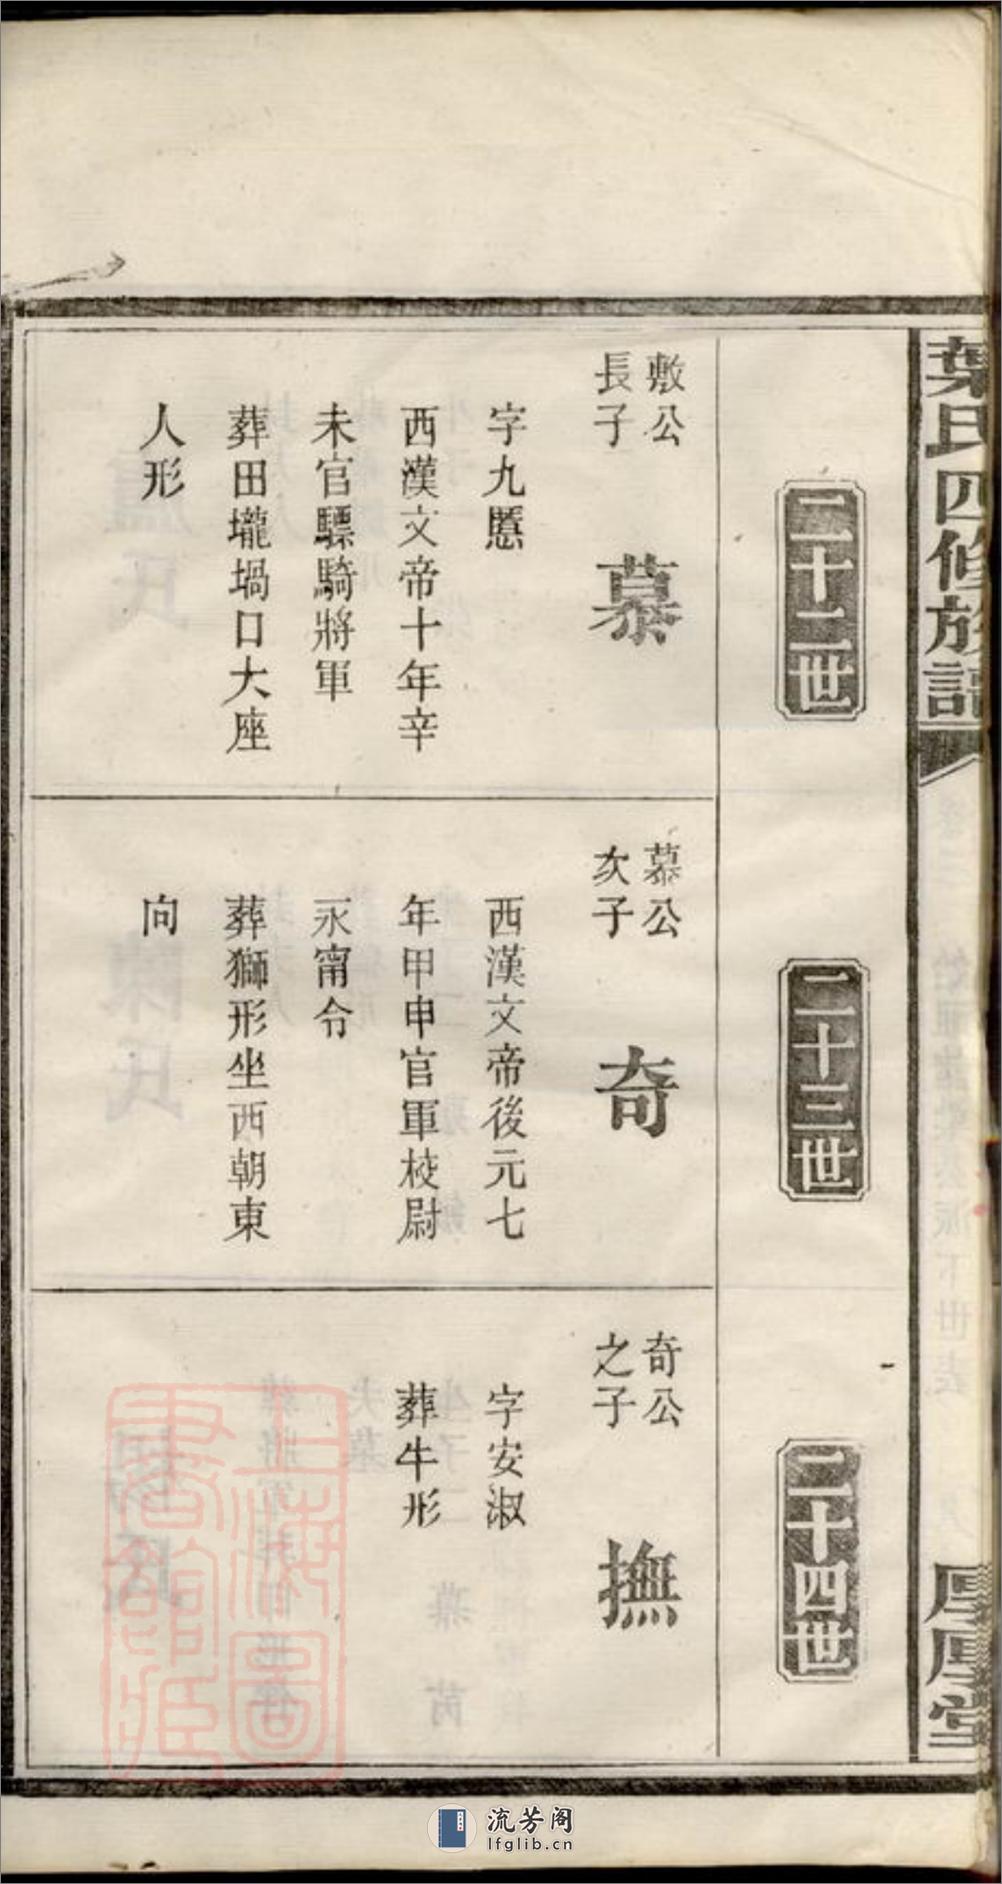 葉氏四修族譜
厚厚堂
二十二世
敷公
長子
慕
字九愿
西漢文帝十二年辛
未官驃騎將軍
葬田壠堝口大座
人形
二十三世
慕公
次子
奇
西漢文帝後元七
年甲申官軍校尉
永甯令
葬獅形坐西朝東
向
二十四世
奇公
之子
撫
字安淑
葬牛形
上海圖
書館藏
流芳阁
lfglib.cn